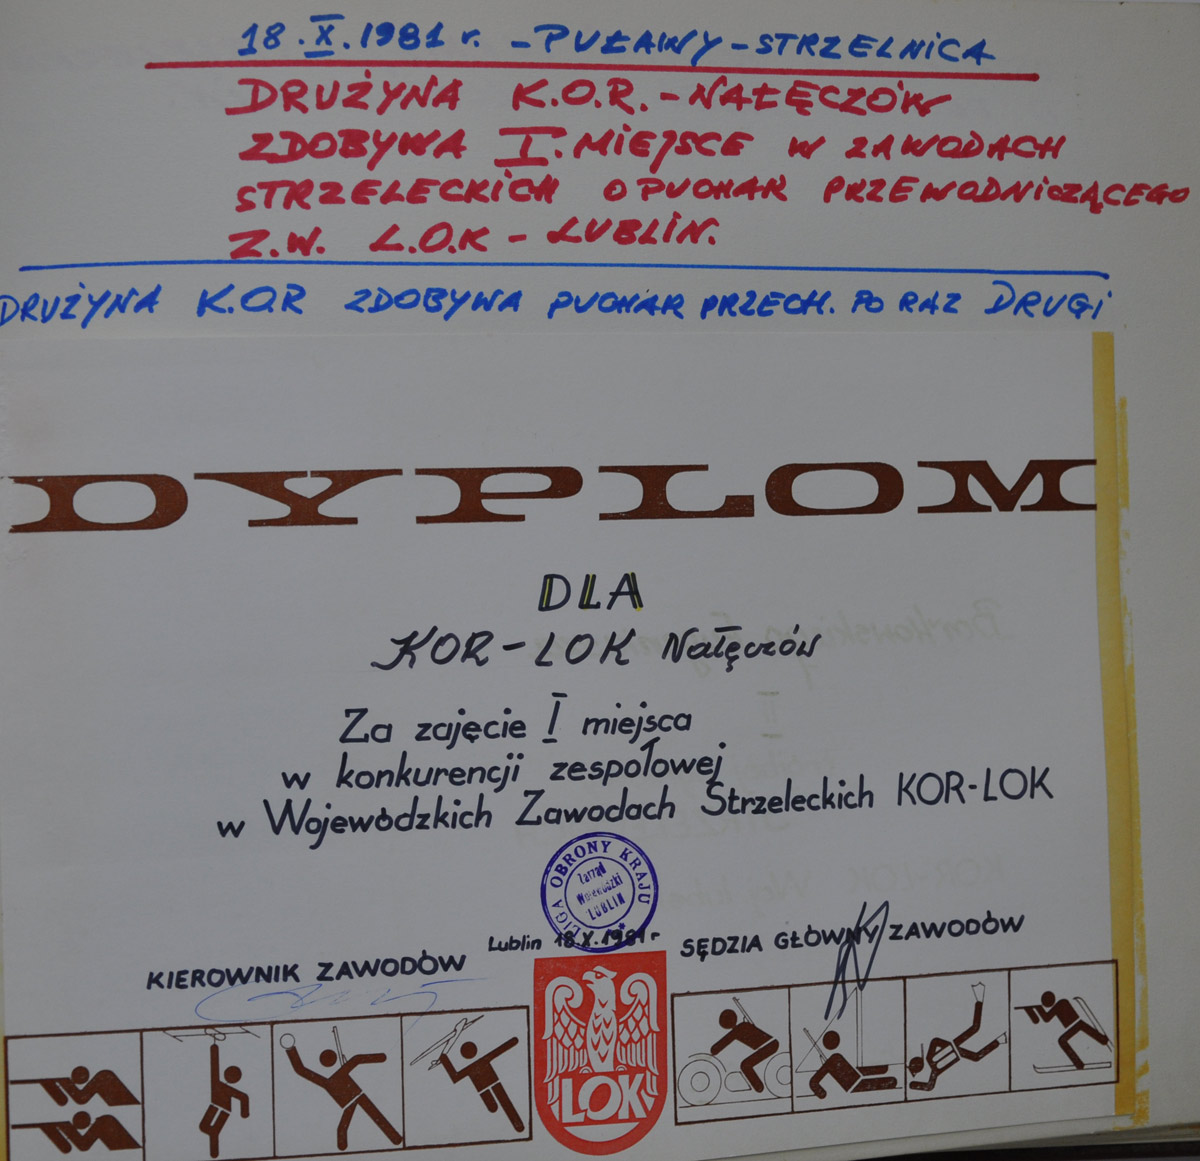 18.X.1981 r. - PUŁAWY - STRZELNICA
DRUŻYNA K.O.R. - NAŁĘCZÓW
ZDOBYWA I. MIEJSCE W ZAWODACH
STRZELECKICH O PUCHAR PRZEWODNICZĄCEGO
Z.W. L.O.K - LUBLIN.
DRUŻYNA K.O.R ZDOBYWA PUCHAR PRZECH. PO RAZ DRUGI
DYPLOM
DLA
KOR-LOK Nałęczów
Za zajęcie I miejsca
w konkurencji zespołowej
w Wojewódzkich Zawodach Strzeleckich KOR-LOK
LIGA OBRONY KRAJU
Zarząd
Wojewódzki
LUBLIN
Lublin 18.X.1981 r
KIEROWNIK ZAWODÓW
SĘDZIA GŁÓWNY ZAWODÓW
LOK